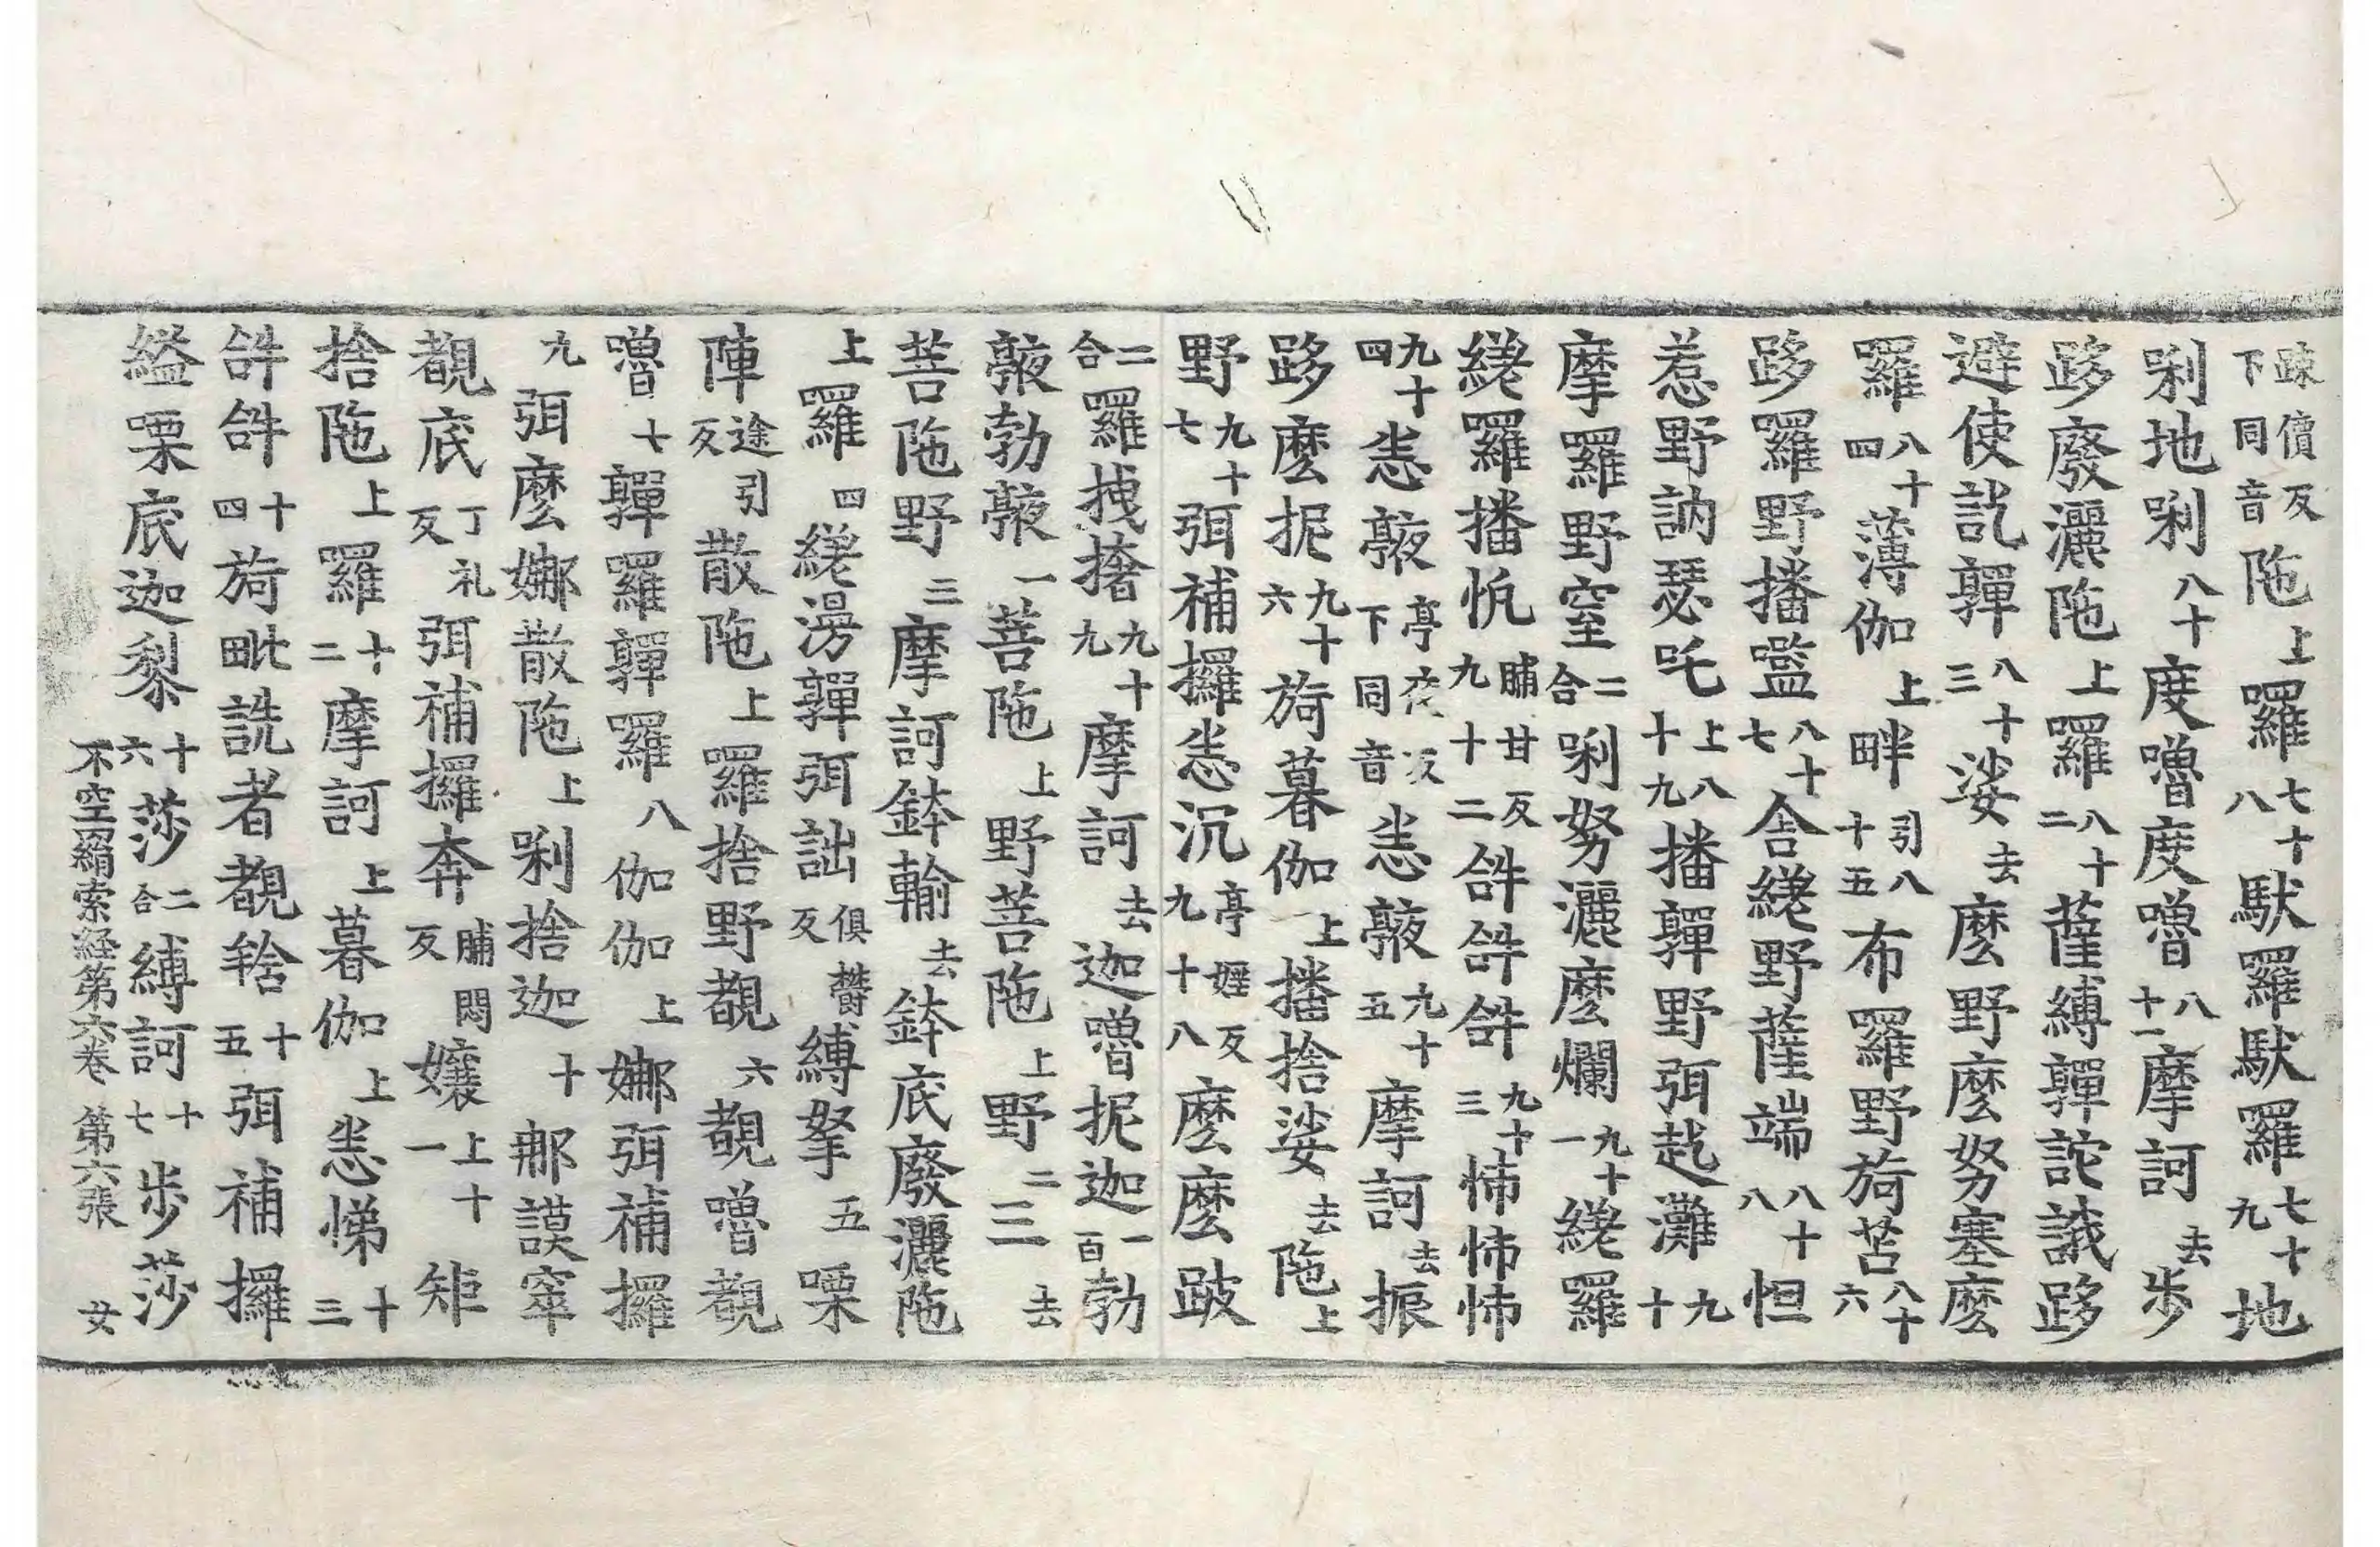 踈價反下同音陁上羅七十八馱羅馱羅七十九地
唎地唎八十度嚕度嚕八十一摩訶去步
跢廢灑陁上羅八十二薩縛䩭詑議跢
避使訖䩭八十三娑去麼野麼努塞麼
羅八十四薄伽上畔引八十五布羅野旖苫八十六
跢羅野播㘕八十七舍縒野薩端八十八怛
惹野訥瑟吒上八十九播䩭野弭趂灘九十
摩羅野窒二合唎努灑麼爛九十一縒羅
縒羅播怳脯甘反九十二𤙖𤙖𤙖九十三怖怖怖
九十四恙㲉亭夜反下同音恙㲉九十五摩訶去振
跢麼抳九十六旖暮伽上播捨娑去陁上
野九十七弭補攞恙沉亭婬反九十八麼麼跛
二合羅拽撦九十九摩訶去迦嚕抳迦一百勃
㲉勃㲉一菩陁上野菩陁上野二三去
菩陁野三摩訶鉢輸去鉢底廢灑陁
上羅四縒澷䩭弭詘俱欝反縛拏五㗚
陣途引反散陁上羅捨野覩六覩嚕覩
嚕七䩭羅䩭羅八伽伽上娜弭補攞
九弭麼娜散陁上唎捨迦十那謨窣
覩底丁礼反弭補攞奔脯悶反孃上十一矩
捨陁上羅十二摩訶上暮伽上恙悌十三
𤙖𤙖十四旖毗詵者覩𤚥十五弭補攞
縊㗚底迦黎十六莎二合縛訶十七步莎
不空羂索経第六卷 第六張 女